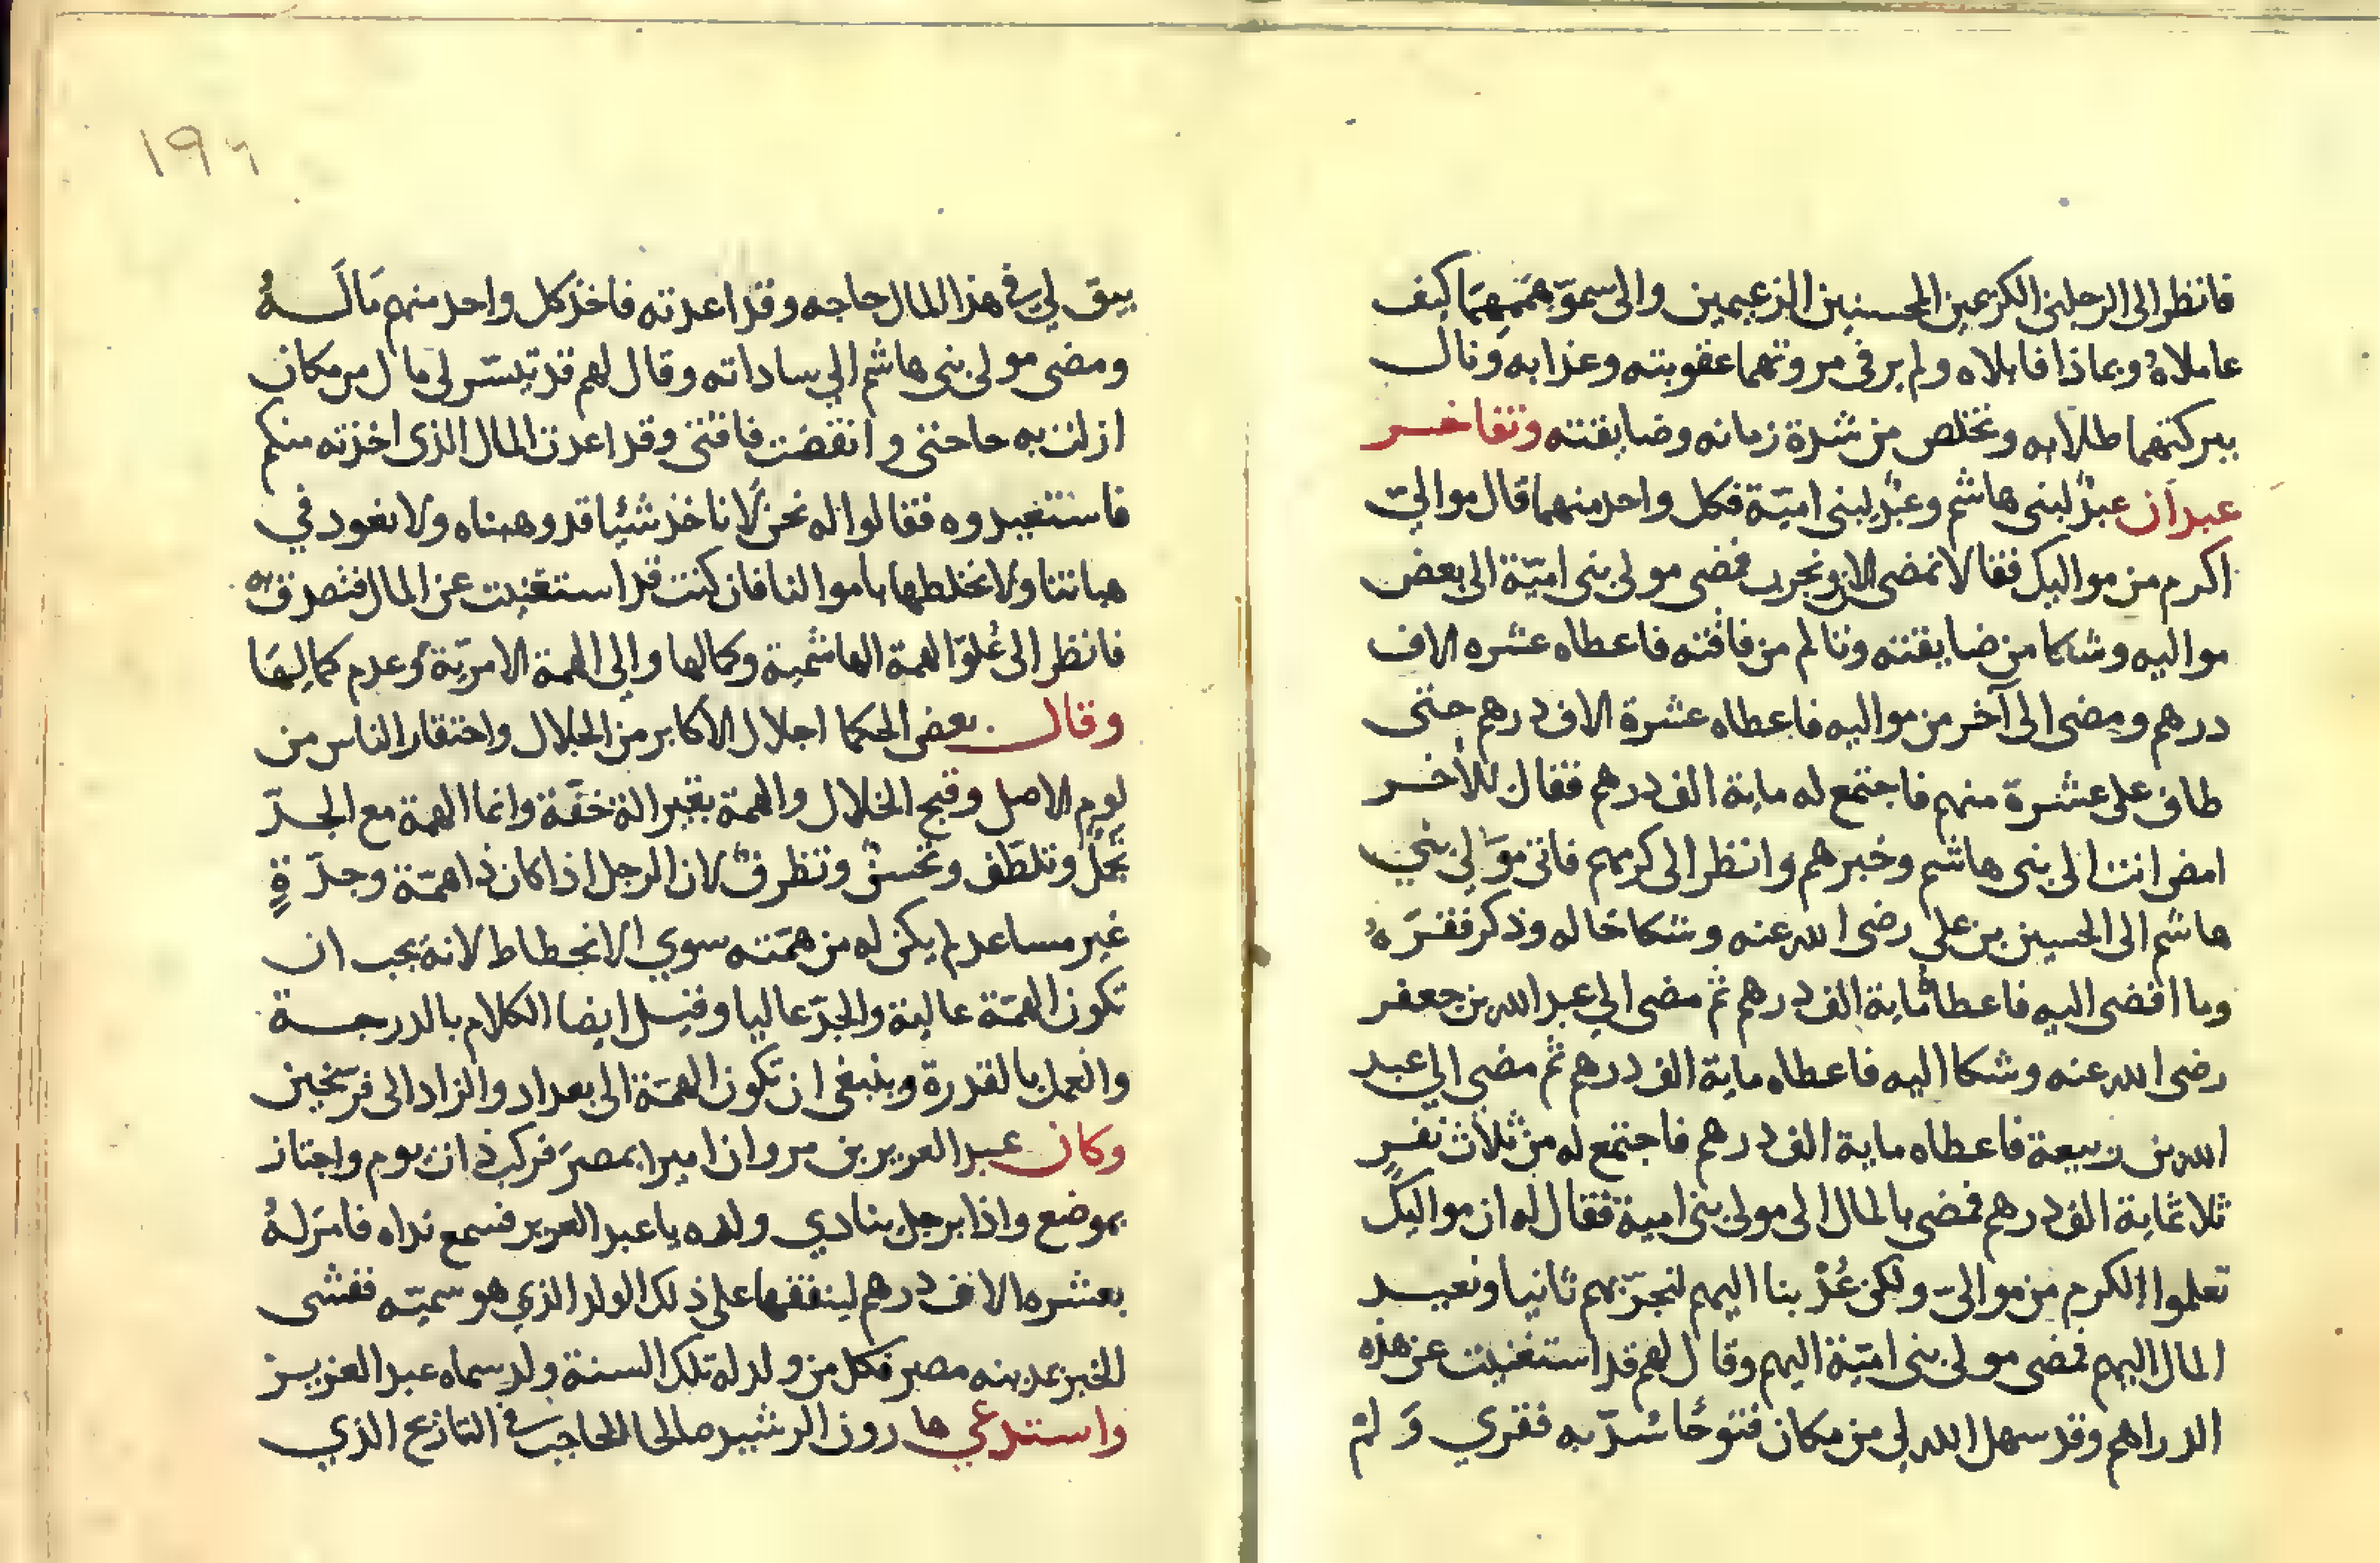 فانظر الى الرجلين الكريمين المحسنين الزعيمين والى سموّ هممهما كيف
عاملاه وبماذا قابلاه ولم ير فى مروتهما عقوبته وعذابه ونال
ببركتهما طلابه وتخلص من شدة زمانه وضايقته وتفاخر
عبدان عبدٌ لبنى هاشم وعبدٌ لبنى اميّة فكل واحد منهما قال موالىّ
اكرم من مواليك فقالا نمضى الان ونجرب فمضى مولى بنى اميّة الى بعض
مواليه وشكا من ضايقته وتالم من فاقته فاعطاه عشره الاف
درهم ومضى الى آخر من مواليه فاعطاه عشرة الاف درهم حتى
طاف على عشرة منهم فاجتمع له ماية الف درهم فقال للأخر
امض انت الى بنى هاشم وخبرهم وانظر الى كرمهم فاتى مولى بني
هاشم الى الحسين بن على رضى الله عنه وشكا حاله وذكر فقره
وما افضى اليه فاعطاه ماية الف درهم ثم مضى الى عبد الله بن جعفر
رضى الله عنه وشكا اليه فاعطاه ماية الف درهم ثم مضى الى عبد
الله بن ربيعة فاعطاه ماية الف درهم فاجتمع له من ثلاث نفرٍ
ثلاثماية الف درهم فمضى بالمال الى مولى بنى امية فقال له ان مواليك
تعلموا الكرم من موالىّ ولكن عُدْ بنا اليهم لنجرّبهم ثانيا ونعيد
المال اليهم فمضى مولى بنى اميّة اليهم وقال لهم قد استغنيت عن هذه
الدراهم وقد سهل الله لى من مكان فتوحًا سُدّ به فقري وَلم
١٩٦
يبق لي فى هذا المال حاجه وقد اعدته فاخذ كل واحد منهم مالَهُ
ومضى مولى بنى هاشم الى ساداته وقال لهم قد تيسّر لى مال من مكان
ازلت به حاجتى وانقضت فاقتى وقد اعدت المال الذى اخذته منكم
فاستعيدوه فقالوا له نحن لا ناخذ شئيا قد وهبناه ولا نعود في
هباتنا ولا نخلطها باموالنا فان كنت قد استغنيت عن المال فتصدق به
فانظر الى عُلوّ الهمة الهاشمية وكمالها والى الهمة الامويّة وعدم كمالِهَا
وقال بعض الحكما اجلال الاكابر من الجلال واحتقار الناس من
لوم الاصل وقبح الخلال والهمة بغير الة خفّة وانما الهمة مع الجدّ
تجلّ وتلطّف وتحسنٌ وتظرفٌ لان الرجل اذا كان ذا همّة وجدّةٍ
غير مساعد لم يكن له من همّته سوي الانحطاط لانه يجب ان
تكون الهمّة عالية والجدّ عاليا وقيل ايضا الكلام بالدرجة
والعمل بالقدرة وينبغى ان تكون الهمّة الى بغداد والزاد الى فرسخين
وكان عبد العزيز بن مروان اميرا بمصرَ فركب ذات يوم واجتاز
بموضع واذا برجل ينادي ولده يا عبد العزيز فسمع نداه فامر لهُ
بعشره الاف درهم لينفقها على ذلك الولد الذي هو سميّه ففشى
الخبر بمدينه مصر فكل من ولد له تلك السنة ولد سماه عبد العزيز
واستدعي هارون الرشيد صالحا الحاجب فى التاريخ الذي